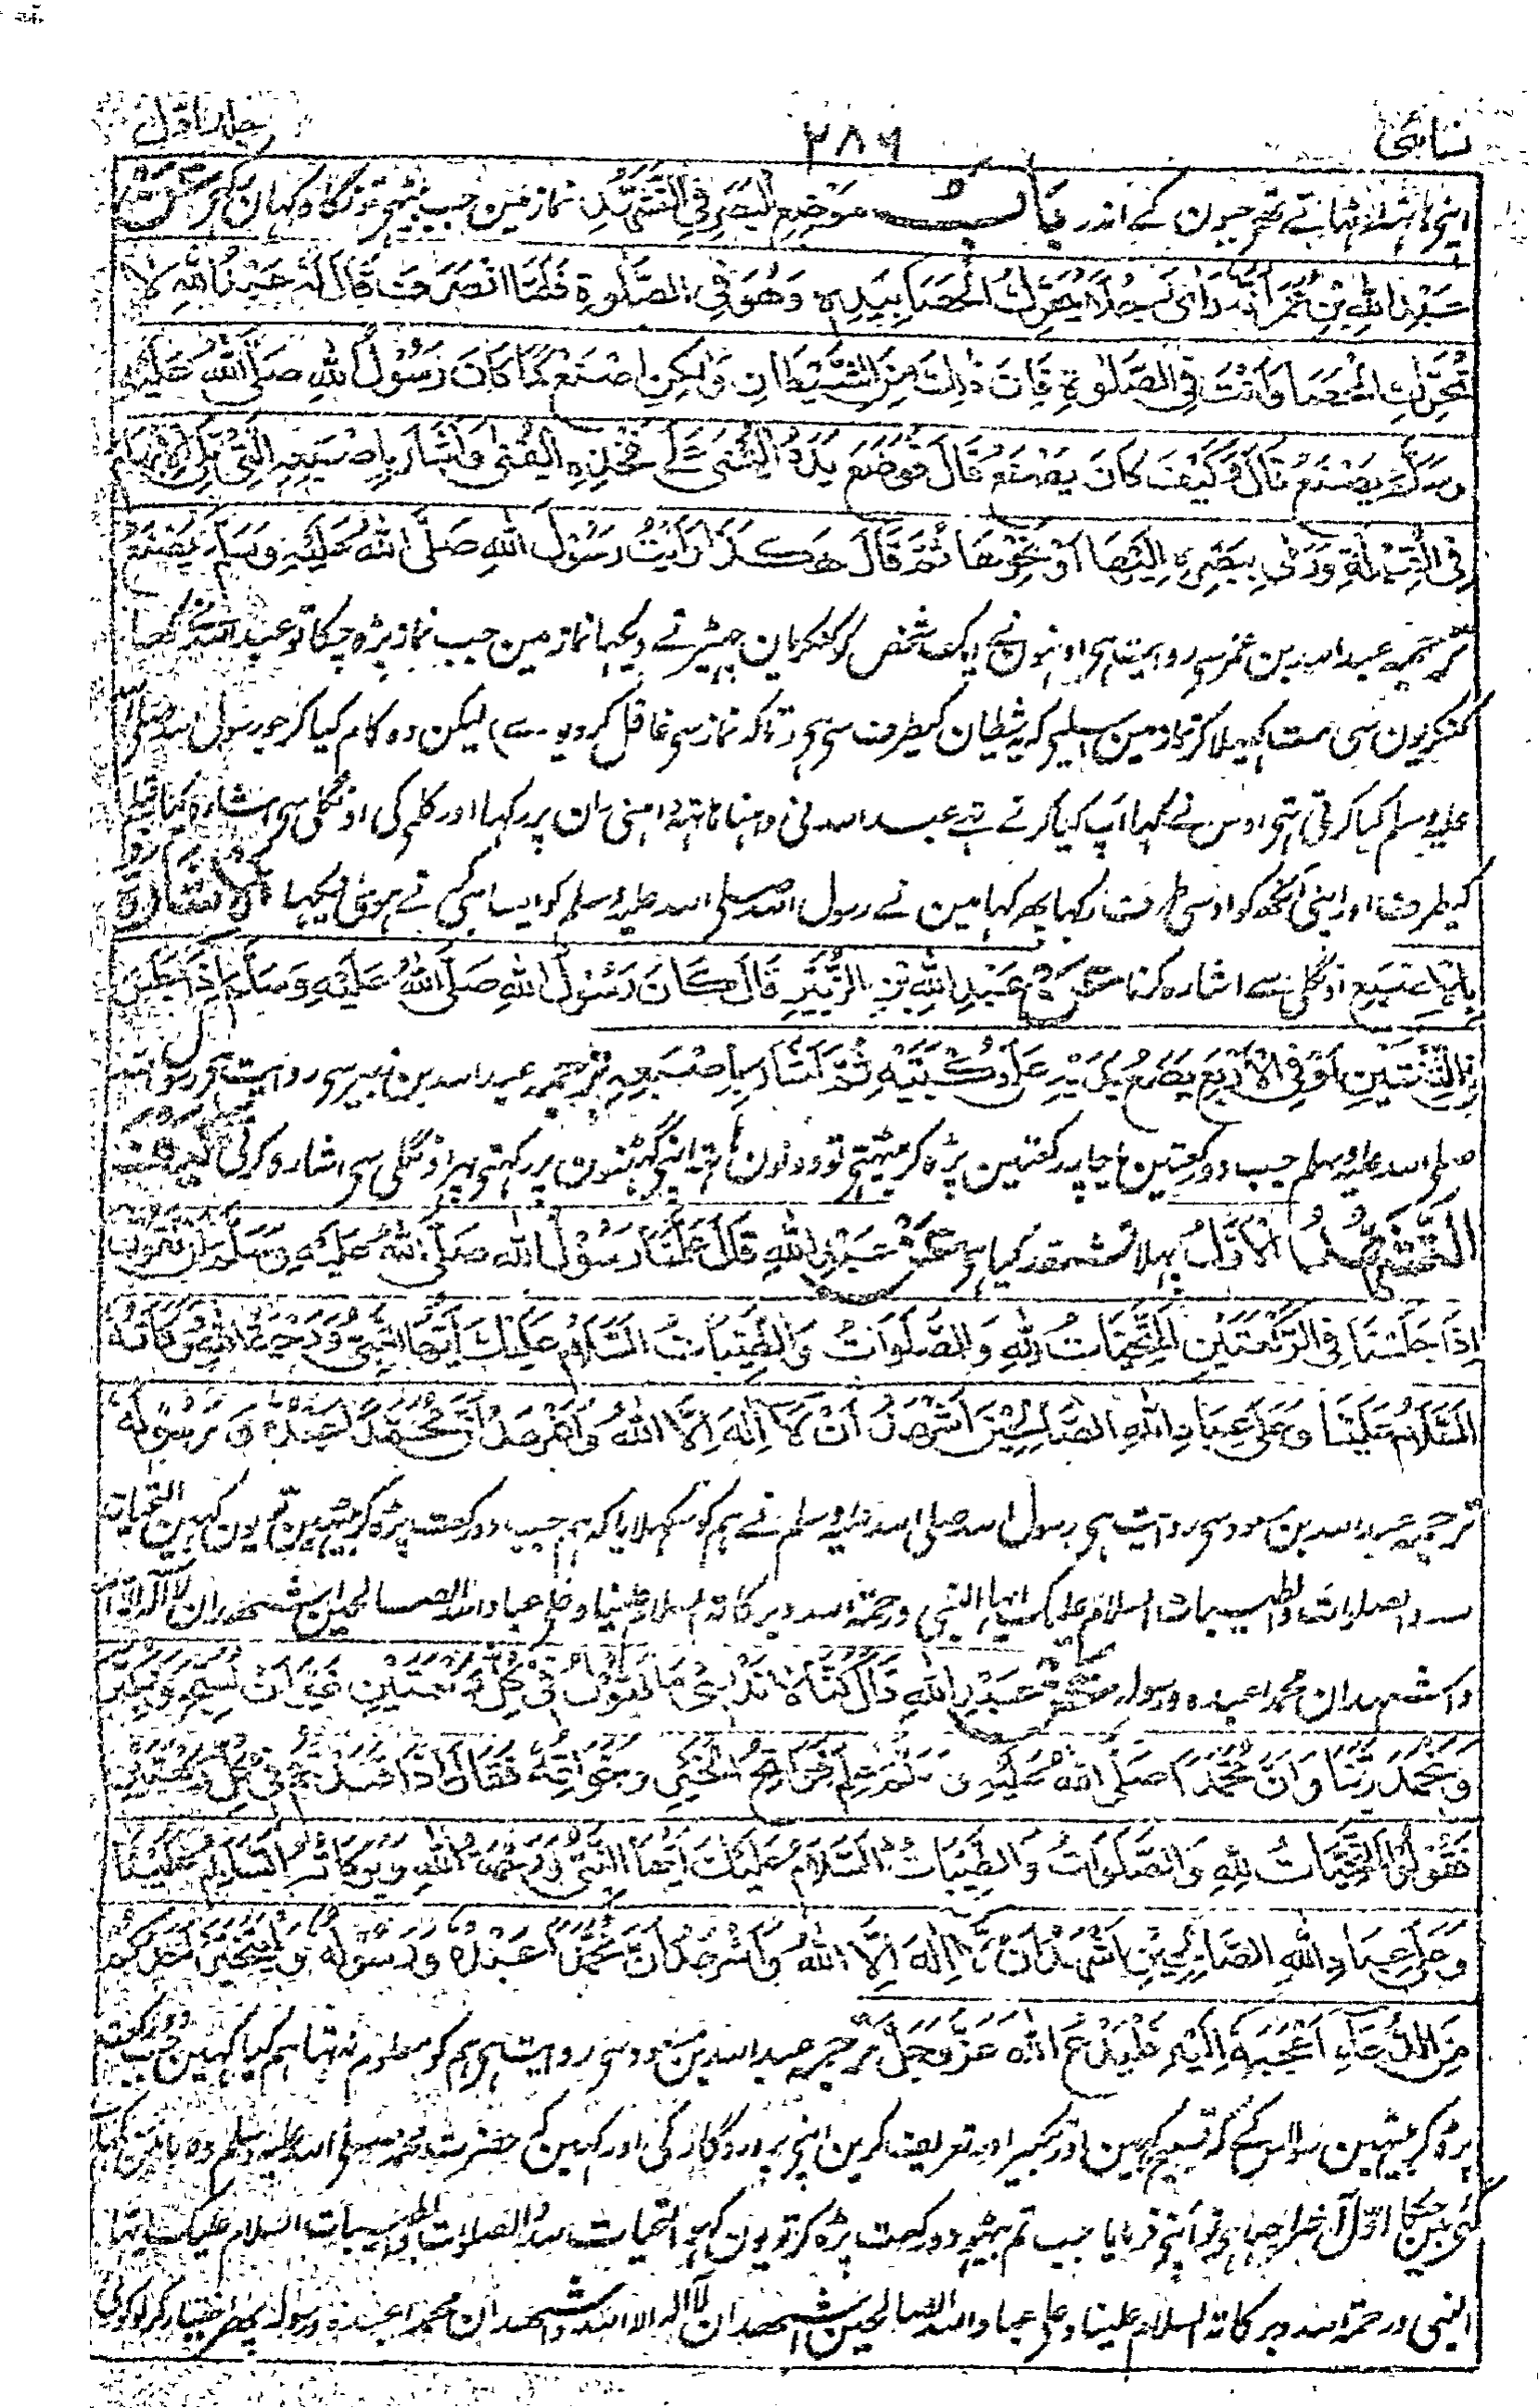 نسائی ۲۸۶ جلد اول
اپنی ہاتھ اٹھاتے تھے جبون کے اندر بَابُ مَوْضِعِ الْبَصَرِ فِی التَّشَهُّدِ نماز مین جب بیٹھی تو نگاہ کہان رکہی عَنْ
عَبْدِ اللّٰهِ بْنِ عُمَرَ اَنَّهٗ رَاٰی رَجُلًا یُحَرِّكُ الْحَصَا بِیَدِهٖ وَهُوَ فِی الصَّلٰوةِ فَلَمَّا انْصَرَفَ قَالَ لَهٗ عَبْدُ اللّٰهِ لَا
تُحَرِّكِ الْحَصَا وَاَنْتَ فِی الصَّلٰوةِ فَاِنَّ ذٰلِكَ مِنَ الشَّیْطَانِ وَلٰكِنِ اصْنَعْ كَمَا كَانَ رَسُوْلُ اللّٰهِ صَلَّی اللّٰهُ عَلَیْهِ
وَسَلَّمَ یَصْنَعُ قَالَ وَكَیْفَ كَانَ یَصْنَعُ قَالَ فَوَضَعَ یَدَهُ الْیُمْنٰی عَلٰی فَخِذِهِ الْیُمْنٰی وَاَشَارَ بِاِصْبَعِهِ الَّتِیْ تَلِی الْاِبْهَامَ
فِی الْقِبْلَةِ وَرَمٰی بِبَصَرِهٖ اِلَیْهَا اَوْ نَحْوِهَا ثُمَّ قَالَ هٰكَذَا رَاَیْتُ رَسُوْلَ اللّٰهِ صَلَّی اللّٰهُ عَلَیْهِ وَسَلَّمَ یَصْنَعُ
ترجمہ عبد اللہ بن عمر سے روایت ہی اونہون نی ایک شخص کو کنکریان چھیڑتے دیکہا نماز مین جب نماز پڑہ چکا تو عبد اللہ نے کہا
کنکریون سی مت کہیلا کر نماز مین اسلیی کہ یہ شیطان کیطرف سی ہی (تاکہ نماز سی غافل کر دیوے) لیکن وہ کام کیا کر جو رسول اللہ صلی اللہ
علیہ وسلم کیا کرتی تہی اوس نے کہا آپ کیا کرتے تہے عبد اللہ نی داہنا ہاتہہ اپنی ران پر رکہا اور کلمہ کی اونگلی سی اشارہ کیا قبلہ
کیطرف اور اپنی آنکھ کو اوسی طرف رکہا پھر کہا مین نے رسول اللہ صلی اللہ علیہ وسلم کو ایسا ہی کرتے ہوئی دیکہا اَلْاِشَارَةُ
بِالْاِصْبَعِ اونگلی سے اشارہ کرنا عَنْ عَبْدِ اللّٰهِ بْنِ الزُّبَیْرِ قَالَ كَانَ رَسُوْلُ اللّٰهِ صَلَّی اللّٰهُ عَلَیْهِ وَسَلَّمَ اِذَا جَلَسَ
فِی الثِّنْتَیْنِ اَوْ فِی الْاَرْبَعِ یَضَعُ یَدَیْهِ عَلٰی رُكْبَتَیْهِ ثُمَّ اَشَارَ بِاِصْبَعِهٖ ترجمہ عبد اللہ بن زبیر سی روایت ہی رسول اللہ
صلی اللہ علیہ وسلم جب دو رکعتین یا چار رکعتین پڑہ کر بیٹھتی تو دونون ہاتہہ اپنی گہٹنون پر رکہتی پہر اونگلی سی اشارہ کرتی كَیْفَ
التَّشَهُّدُ الْاَوَّلُ پہلا تشہد کیا ہی عَنْ عَبْدِ اللّٰهِ قَالَ عَلَّمَنَا رَسُوْلُ اللّٰهِ صَلَّی اللّٰهُ عَلَیْهِ وَسَلَّمَ اَنْ نَقُوْلَ
اِذَا جَلَسْنَا فِی الرَّكْعَتَیْنِ التَّحِیَّاتُ لِلّٰهِ وَالصَّلَوَاتُ وَالطَّیِّبَاتُ السَّلَامُ عَلَیْكَ اَیُّهَا النَّبِیُّ وَرَحْمَةُ اللّٰهِ وَبَرَكَاتُهٗ
السَّلَامُ عَلَیْنَا وَعَلٰی عِبَادِ اللّٰهِ الصَّالِحِیْنَ اَشْهَدُ اَنْ لَّا اِلٰهَ اِلَّا اللّٰهُ وَاَشْهَدُ اَنَّ مُحَمَّدًا عَبْدُهٗ وَرَسُوْلُهٗ
ترجمہ عبد اللہ بن مسعود سی روایت ہی رسول اللہ صلی اللہ علیہ وسلم نے ہم کو سکہلایا کہ ہم جب دو رکعت پڑہ کر بیٹہین تو یون کہین التحیات
للہ والصلوات والطیبات السلام علیک ایہا النبی ورحمۃ اللہ وبرکاتہ السلام علینا وعلی عباد اللہ الصالحین اشہد ان لا الہ الا اللہ
واشہد ان محمدا عبدہ ورسولہ عَنْ عَبْدِ اللّٰهِ قَالَ كُنَّا لَا نَدْرِیْ مَا نَقُوْلُ فِیْ كُلِّ رَكْعَتَیْنِ غَیْرَ اَنْ نُسَبِّحَ وَنُكَبِّرَ
وَنَحْمَدَ رَبَّنَا وَاَنَّ مُحَمَّدًا صَلَّی اللّٰهُ عَلَیْهِ وَسَلَّمَ عُلِّمَ فَوَاتِحَ الْخَیْرِ وَخَوَاتِمَهٗ فَقَالَ اِذَا قَعَدْتُمْ فِیْ كُلِّ رَكْعَتَیْنِ
فَقُوْلُوْا التَّحِیَّاتُ لِلّٰهِ وَالصَّلَوَاتُ وَالطَّیِّبَاتُ السَّلَامُ عَلَیْكَ اَیُّهَا النَّبِیُّ وَرَحْمَةُ اللّٰهِ وَبَرَكَاتُهٗ السَّلَامُ عَلَیْنَا
وَعَلٰی عِبَادِ اللّٰهِ الصَّالِحِیْنَ اَشْهَدُ اَنْ لَّا اِلٰهَ اِلَّا اللّٰهُ وَاَشْهَدُ اَنَّ مُحَمَّدًا عَبْدُهٗ وَرَسُوْلُهٗ وَلْیَتَخَیَّرْ اَحَدُكُمْ
مِنَ الدُّعَاءِ اَعْجَبَهٗ اِلَیْهِ فَلْیَدْعُ اللّٰهَ عَزَّ وَجَلَّ ترجمہ عبد اللہ بن مسعود سی روایت ہی ہم کو معلوم نہ تہا ہم کیا کہین جب دو رکعت
پڑہ کر بیٹہین سوا اس کے کہ تسبیح کہین اور تکبیر اور تعریف کرین اپنی پروردگار کی اور کہین کے حضرت محمد صلی اللہ علیہ وسلم وہ باتین سکہلائی
گئی ہین جنکا اول آخر اچہا ہی تو آپنی فرمایا جب تم بیٹہو دو رکعت پڑہ کر تو یون کہو التحیات للہ والصلوات والطیبات السلام علیک ایہا
النبی ورحمۃ اللہ وبرکاتہ السلام علینا وعلی عباد اللہ الصالحین اشہد ان لا الہ الا اللہ واشہد ان محمدا عبدہ ورسولہ پھر اختیار کر لو کوئی